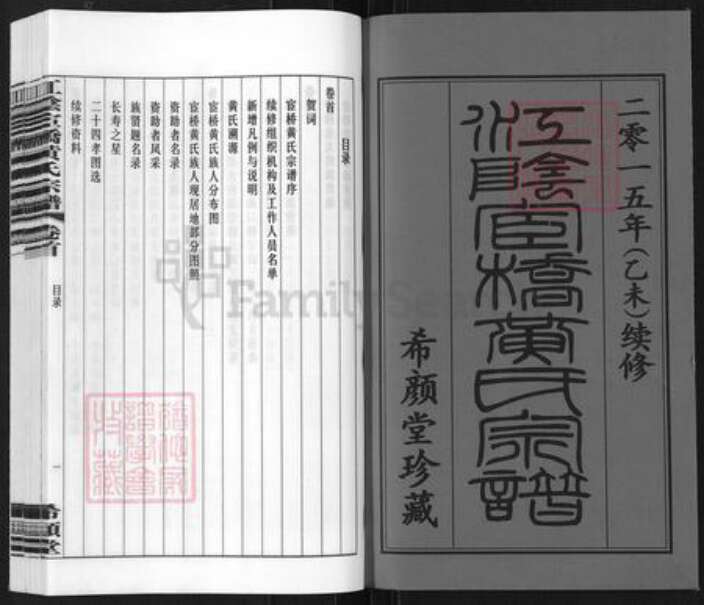 二零一五年(乙未)续修
江陰宦橋黄氏宗譜
希颜堂珍藏
目录
卷首
贺词
宦桥黄氏宗谱序
续修组织机构及工作人员名单
新增凡例与说明
黄氏溯源
宦桥黄氏族人分布图
宦桥黄氏族人现居地部分图照
资助者名录
资助者风采
族贤题名录
长寿之星
二十四孝图选
续修资料
江陰宦橋黄氏宗譜 卷首
目录
一
希颜堂
FamilySearch